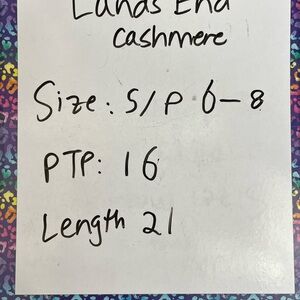 Lands End
cashmere
Size: S/P 6-8
PTP: 16
Length 21